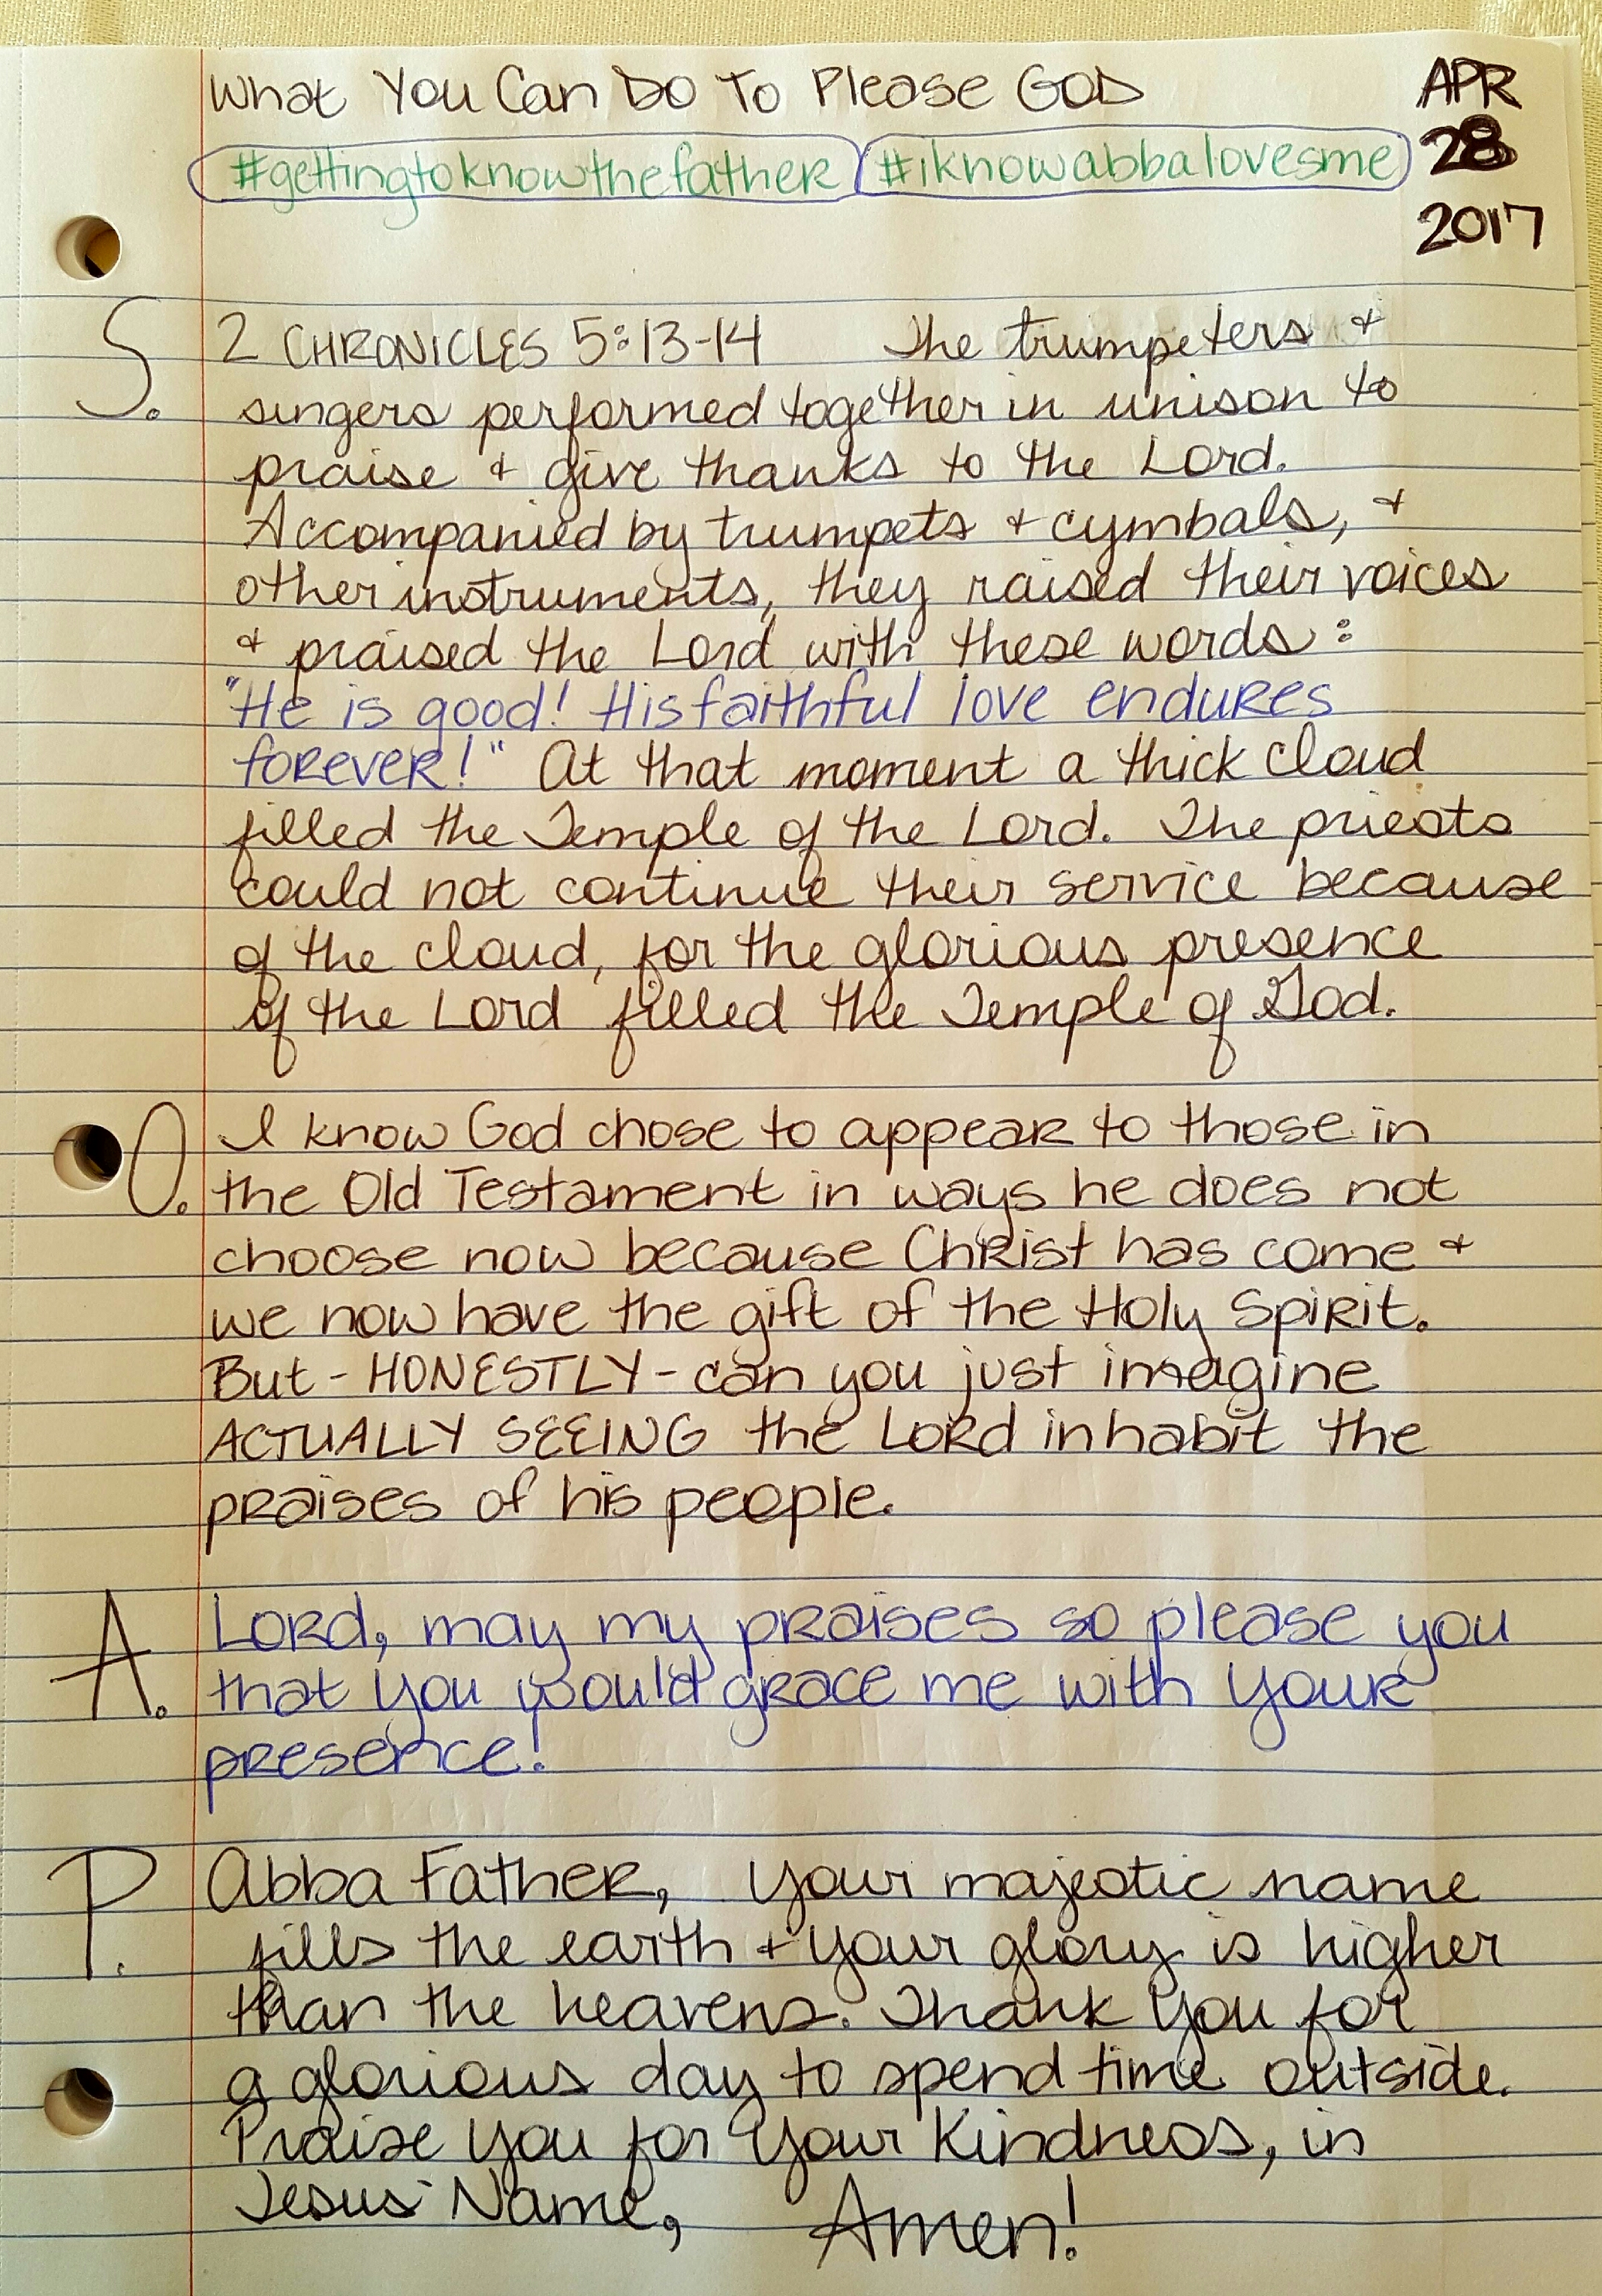 What You Can Do To Please GOD
APR
28
2017
#gettingtoknowthefather #iknowabbalovesme
S. 2 CHRONICLES 5:13-14 The trumpeters +
singers performed together in unison to
praise + give thanks to the Lord.
Accompanied by trumpets + cymbals, +
other instruments, they raised their voices
+ praised the Lord with these words:
"He is good! His faithful love endures
forever!" At that moment a thick cloud
filled the Temple of the Lord. The priests
could not continue their service because
of the cloud, for the glorious presence
of the Lord filled the Temple of God.
O. I know God chose to appear to those in
the Old Testament in ways he does not
choose now because Christ has come +
we now have the gift of the Holy Spirit.
But - HONESTLY - can you just imagine
ACTUALLY SEEING the Lord inhabit the
praises of his people.
A. Lord, may my praises so please you
that you would grace me with your
presence!
P. Abba Father, Your majestic name
fills the earth + Your glory is higher
than the heavens. Thank You for
a glorious day to spend time outside.
Praise You for Your Kindness, in
Jesus' Name, Amen!